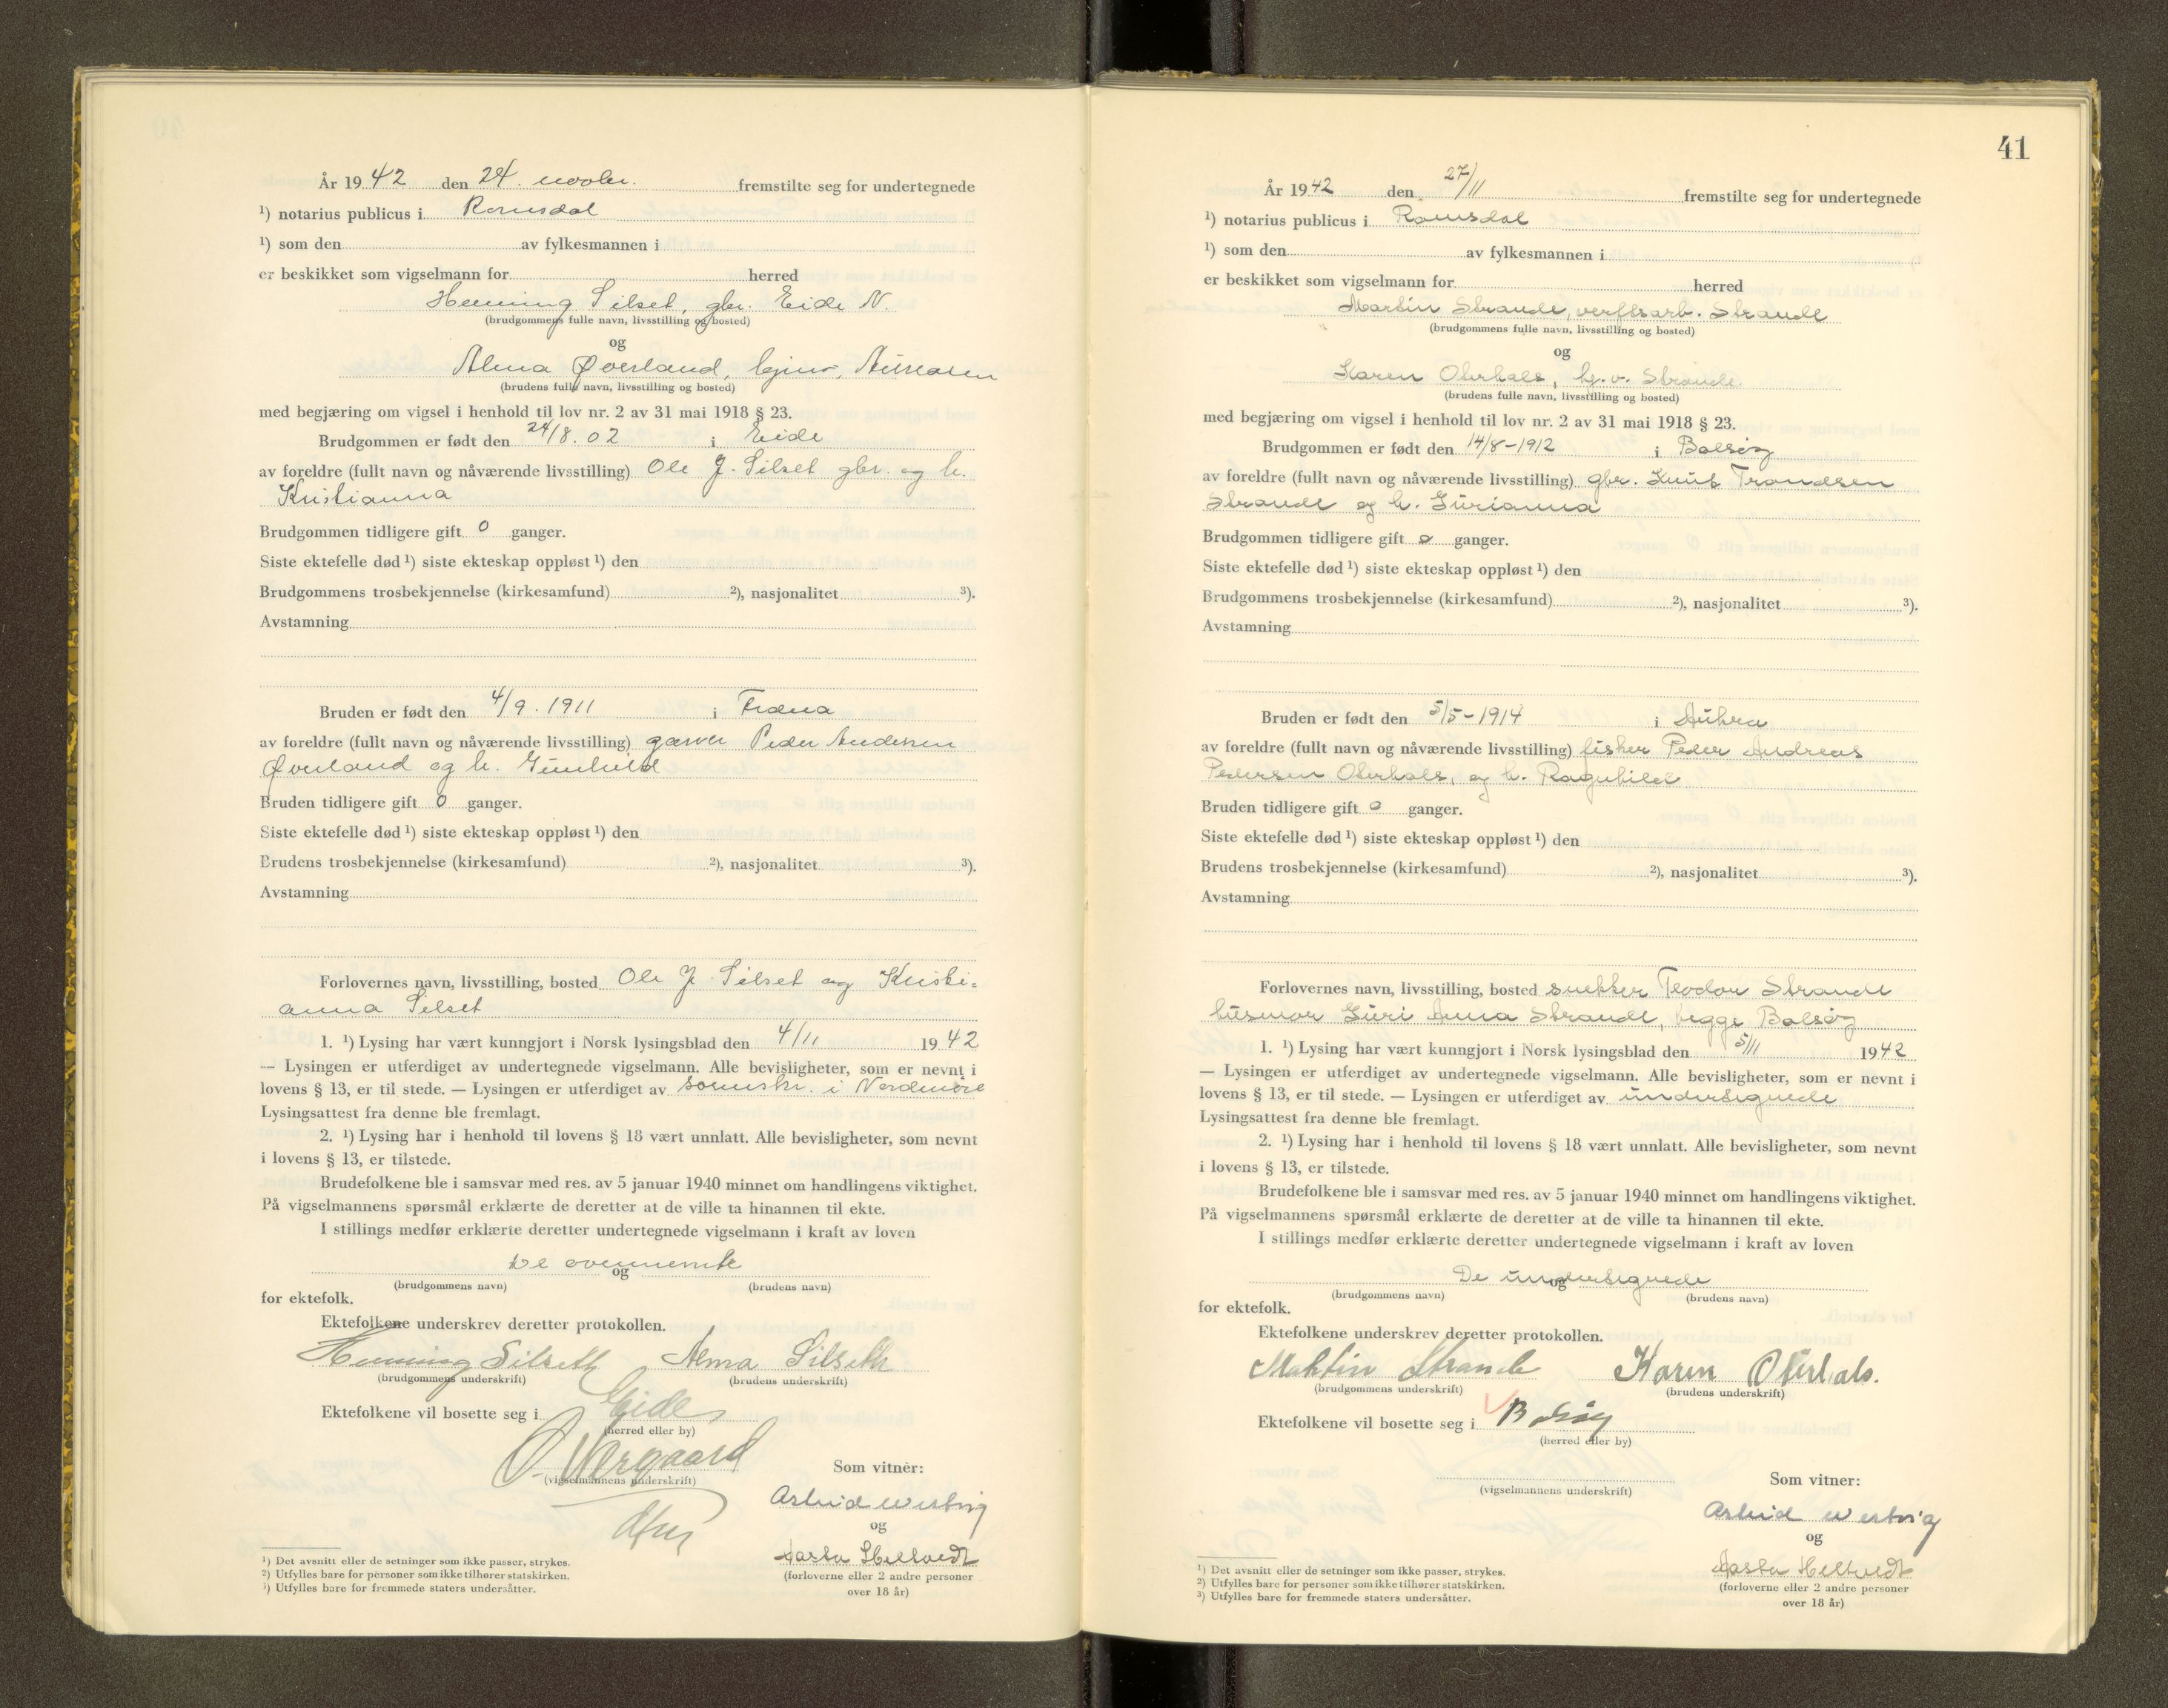 År 1942 den 24. novbr. fremstilte seg for undertegnede
¹) notarius publicus i Romsdal
¹) som den av fylkesmannen i
er beskikket som vigselmann for herred
Henning Silset, gbr. Eide N.
(brudgommens fulle navn, livsstilling og bosted)
og
Alma Øverland, hjmv,
(brudens fulle navn, livsstilling og bosted)
med begjæring om vigsel i henhold til lov nr. 2 av 31 mai 1918 § 23.
Brudgommen er født den 24/8.02 i Eide
av foreldre (fullt navn og nåværende livsstilling) Ole J. Silset gbr. og h.
Kristianna
Brudgommen tidligere gift 0 ganger.
Siste ektefelle død ¹) siste ekteskap oppløst ¹) den
Brudgommens trosbekjennelse (kirkesamfund) ²), nasjonalitet ³).
Avstamning
Bruden er født den 4/9.1911 i Fræna
av foreldre (fullt navn og nåværende livsstilling) garver Peder Andersen
Øverland og h. Gunhild
Bruden tidligere gift 0 ganger.
Siste ektefelle død ¹) siste ekteskap oppløst ¹) den
Brudens trosbekjennelse (kirkesamfund) ²), nasjonalitet ³).
Avstamning
Forlovernes navn, livsstilling, bosted Ole J. Silset og Kristi-
anna Silset
1. ¹) Lysing har vært kunngjort i Norsk lysingsblad den 4/11 1942
— Lysingen er utferdiget av undertegnede vigselmann. Alle bevisligheter, som er nevnt i
lovens § 13, er til stede. — Lysingen er utferdiget av sorenskr. i Nordmøre
Lysingsattest fra denne ble fremlagt.
2. ¹) Lysing har i henhold til lovens § 18 vært unnlatt. Alle bevisligheter, som nevnt
i lovens § 13, er tilstede.
Brudefolkene ble i samsvar med res. av 5 januar 1940 minnet om handlingens viktighet.
På vigselmannens spørsmål erklærte de deretter at de ville ta hinannen til ekte.
I stillings medfør erklærte deretter undertegnede vigselmann i kraft av loven
De ovennevnte
og
(brudgommens navn) (brudens navn)
for ektefolk.
Ektefolkene underskrev deretter protokollen.
Henning Silseth Alma Silseth
(brudgommens underskrift) (brudens underskrift)
Ektefolkene vil bosette seg i Eide
(herred eller by)
(vigselmannens underskrift)
Som vitner:
Astrid Westvig
og
Aasta Heltvedt
(forloverne eller 2 andre personer
over 18 år)
¹) Det avsnitt eller de setninger som ikke passer, strykes.
²) Utfylles bare for personer som ikke tilhører statskirken.
³) Utfylles bare for fremmede staters undersåtter.
41
År 1942 den 27/11 fremstilte seg for undertegnede
¹) notarius publicus i Romsdal
¹) som den av fylkesmannen i
er beskikket som vigselmann for herred
Martin Strande, verftsarb. Strande
(brudgommens fulle navn, livsstilling og bosted)
og
Karen Oterhals, hj.v. Strande
(brudens fulle navn, livsstilling og bosted)
med begjæring om vigsel i henhold til lov nr. 2 av 31 mai 1918 § 23.
Brudgommen er født den 14/8-1912 i Bolsøy
av foreldre (fullt navn og nåværende livsstilling) gbr. Knut Trondsen
Strande og h. Gurianna
Brudgommen tidligere gift 0 ganger.
Siste ektefelle død ¹) siste ekteskap oppløst ¹) den
Brudgommens trosbekjennelse (kirkesamfund) ²), nasjonalitet ³).
Avstamning
Bruden er født den 5/5-1914 i Aukra
av foreldre (fullt navn og nåværende livsstilling) fisker Peder Andreas
Pedersen Oterhals, og h. Ragnhild
Bruden tidligere gift 0 ganger.
Siste ektefelle død ¹) siste ekteskap oppløst ¹) den
Brudens trosbekjennelse (kirkesamfund) ²), nasjonalitet ³).
Avstamning
Forlovernes navn, livsstilling, bosted snekker Teodor Strande
husmor Guri Anna Strande, begge Bolsøy
1. ¹) Lysing har vært kunngjort i Norsk lysingsblad den 5/11 1942
— Lysingen er utferdiget av undertegnede vigselmann. Alle bevisligheter, som er nevnt i
lovens § 13, er til stede. — Lysingen er utferdiget av undertegnede
Lysingsattest fra denne ble fremlagt.
2. ¹) Lysing har i henhold til lovens § 18 vært unnlatt. Alle bevisligheter, som nevnt
i lovens § 13, er tilstede.
Brudefolkene ble i samsvar med res. av 5 januar 1940 minnet om handlingens viktighet.
På vigselmannens spørsmål erklærte de deretter at de ville ta hinannen til ekte.
I stillings medfør erklærte deretter undertegnede vigselmann i kraft av loven
De undertegnede
og
(brudgommens navn) (brudens navn)
for ektefolk.
Ektefolkene underskrev deretter protokollen.
Martin Strande Karen Oterhals.
(brudgommens underskrift) (brudens underskrift)
Ektefolkene vil bosette seg i Bolsøy
(herred eller by)
(vigselmannens underskrift)
Som vitner:
Astrid Westvig
og
Aasta Heltvedt
(forloverne eller 2 andre personer
over 18 år)
¹) Det avsnitt eller de setninger som ikke passer, strykes.
²) Utfylles bare for personer som ikke tilhører statskirken.
³) Utfylles bare for fremmede staters undersåtter.